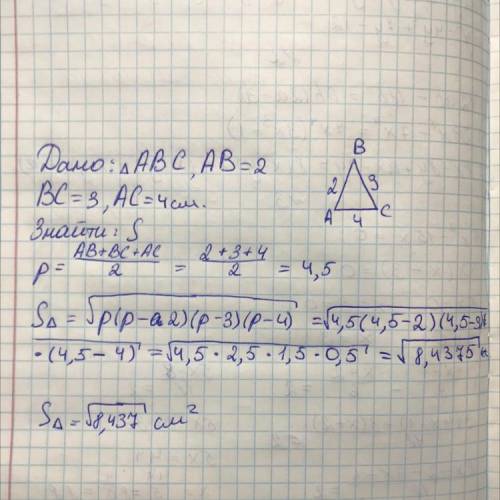 Дано: △ABC, AB=2
BC=3, AC=4см.
Знайти: S
p = (AB+BC+AC)/2 = (2+3+4)/2 = 4,5
S△ = √(p(p-2)(p-3)(p-4)) = √(4,5(4,5-2)(4,5-3)
·(4,5-4)) = √(4,5·2,5·1,5·0,5) = √8,4375
S△ = √8,437 см²
B
2 3
A 4 C